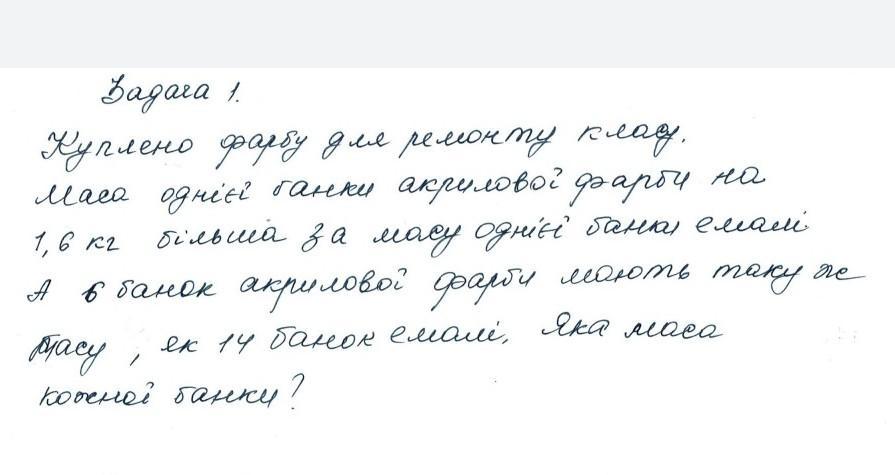 Задача 1.
Куплено фарбу для ремонту класу.
Маса однієї банки акрилової фарби на
1,6 кг більша за масу однієї банки емалі.
А 6 банок акрилової фарби мають таку ж
масу, як 14 банок емалі. Яка маса
кожної банки?